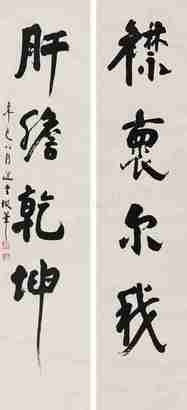 襟衷尔我
肝膽乾坤
辛巳八月